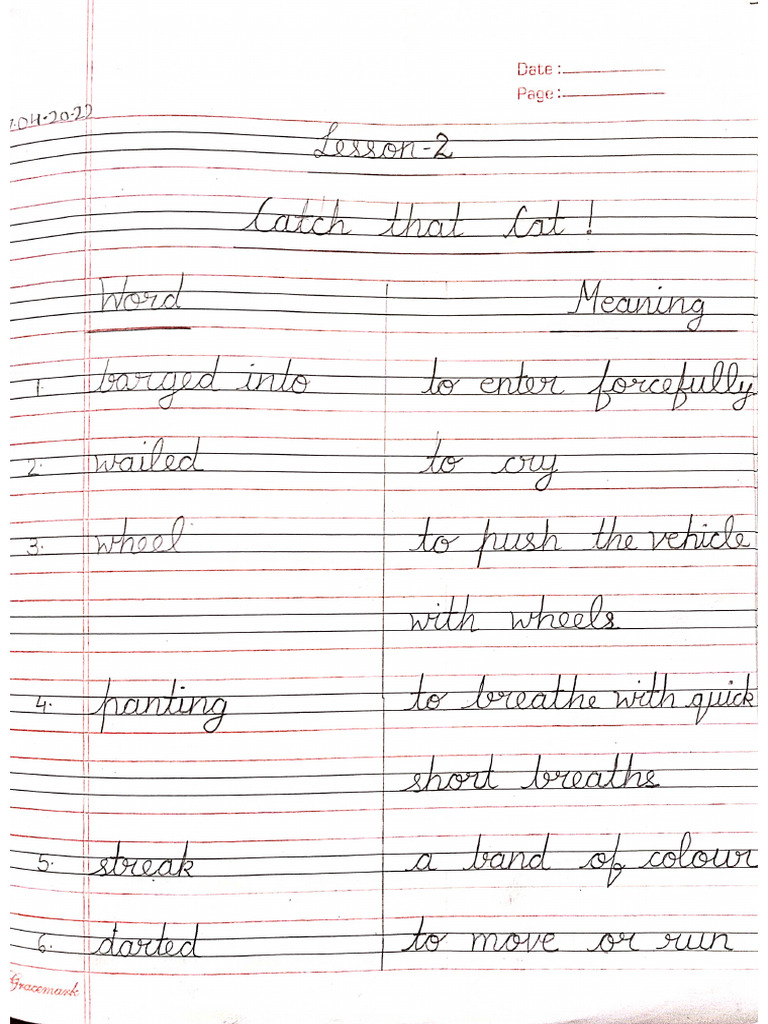 Date :
Page :
.04-20-22
Lesson-2
Catch that Cat !
Word Meaning
1. barged into to enter forcefully
2. wailed to cry
3. wheel to push the vehicle
with wheels
4. panting to breathe with quick
short breaths
5. streak a band of colour
6. darted to move or run
Gracemark